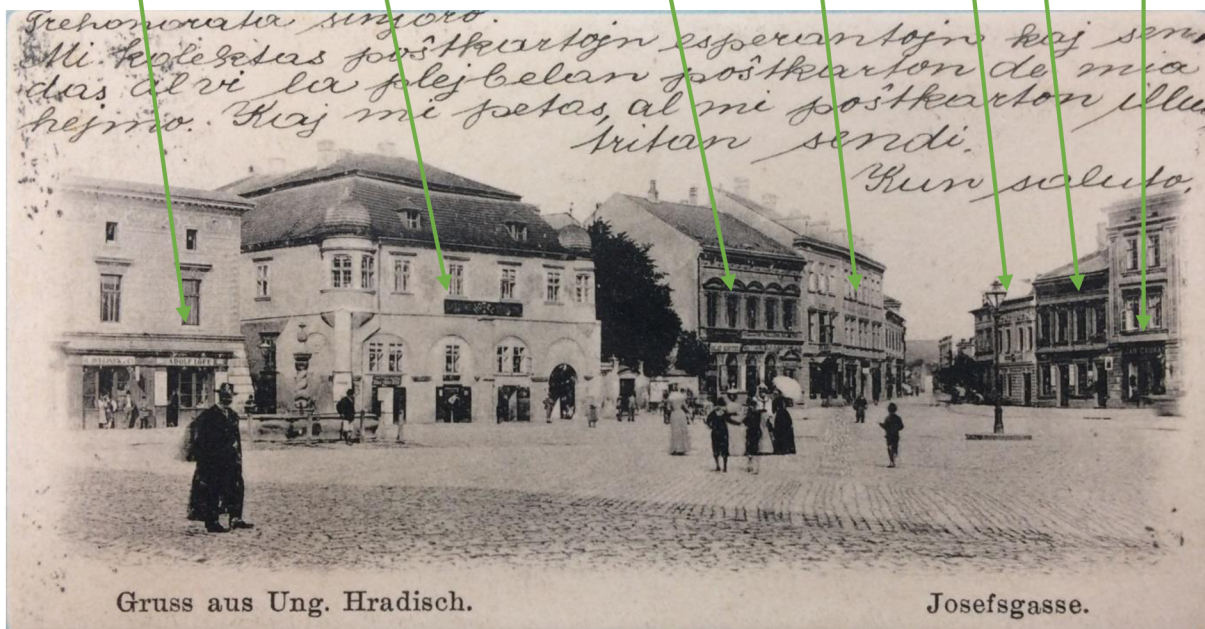 Trehonorata sinjoro.
Mi kolektas poŝtkartojn esperantojn kaj sen
das al vi la plej belan poŝtkarton de mia
hejmo. Kaj mi petas, al mi poŝtkarton illus
tritan sendi.
Kun saluto,
ADOLF
Gruss aus Ung. Hradisch.
Josefsgasse.